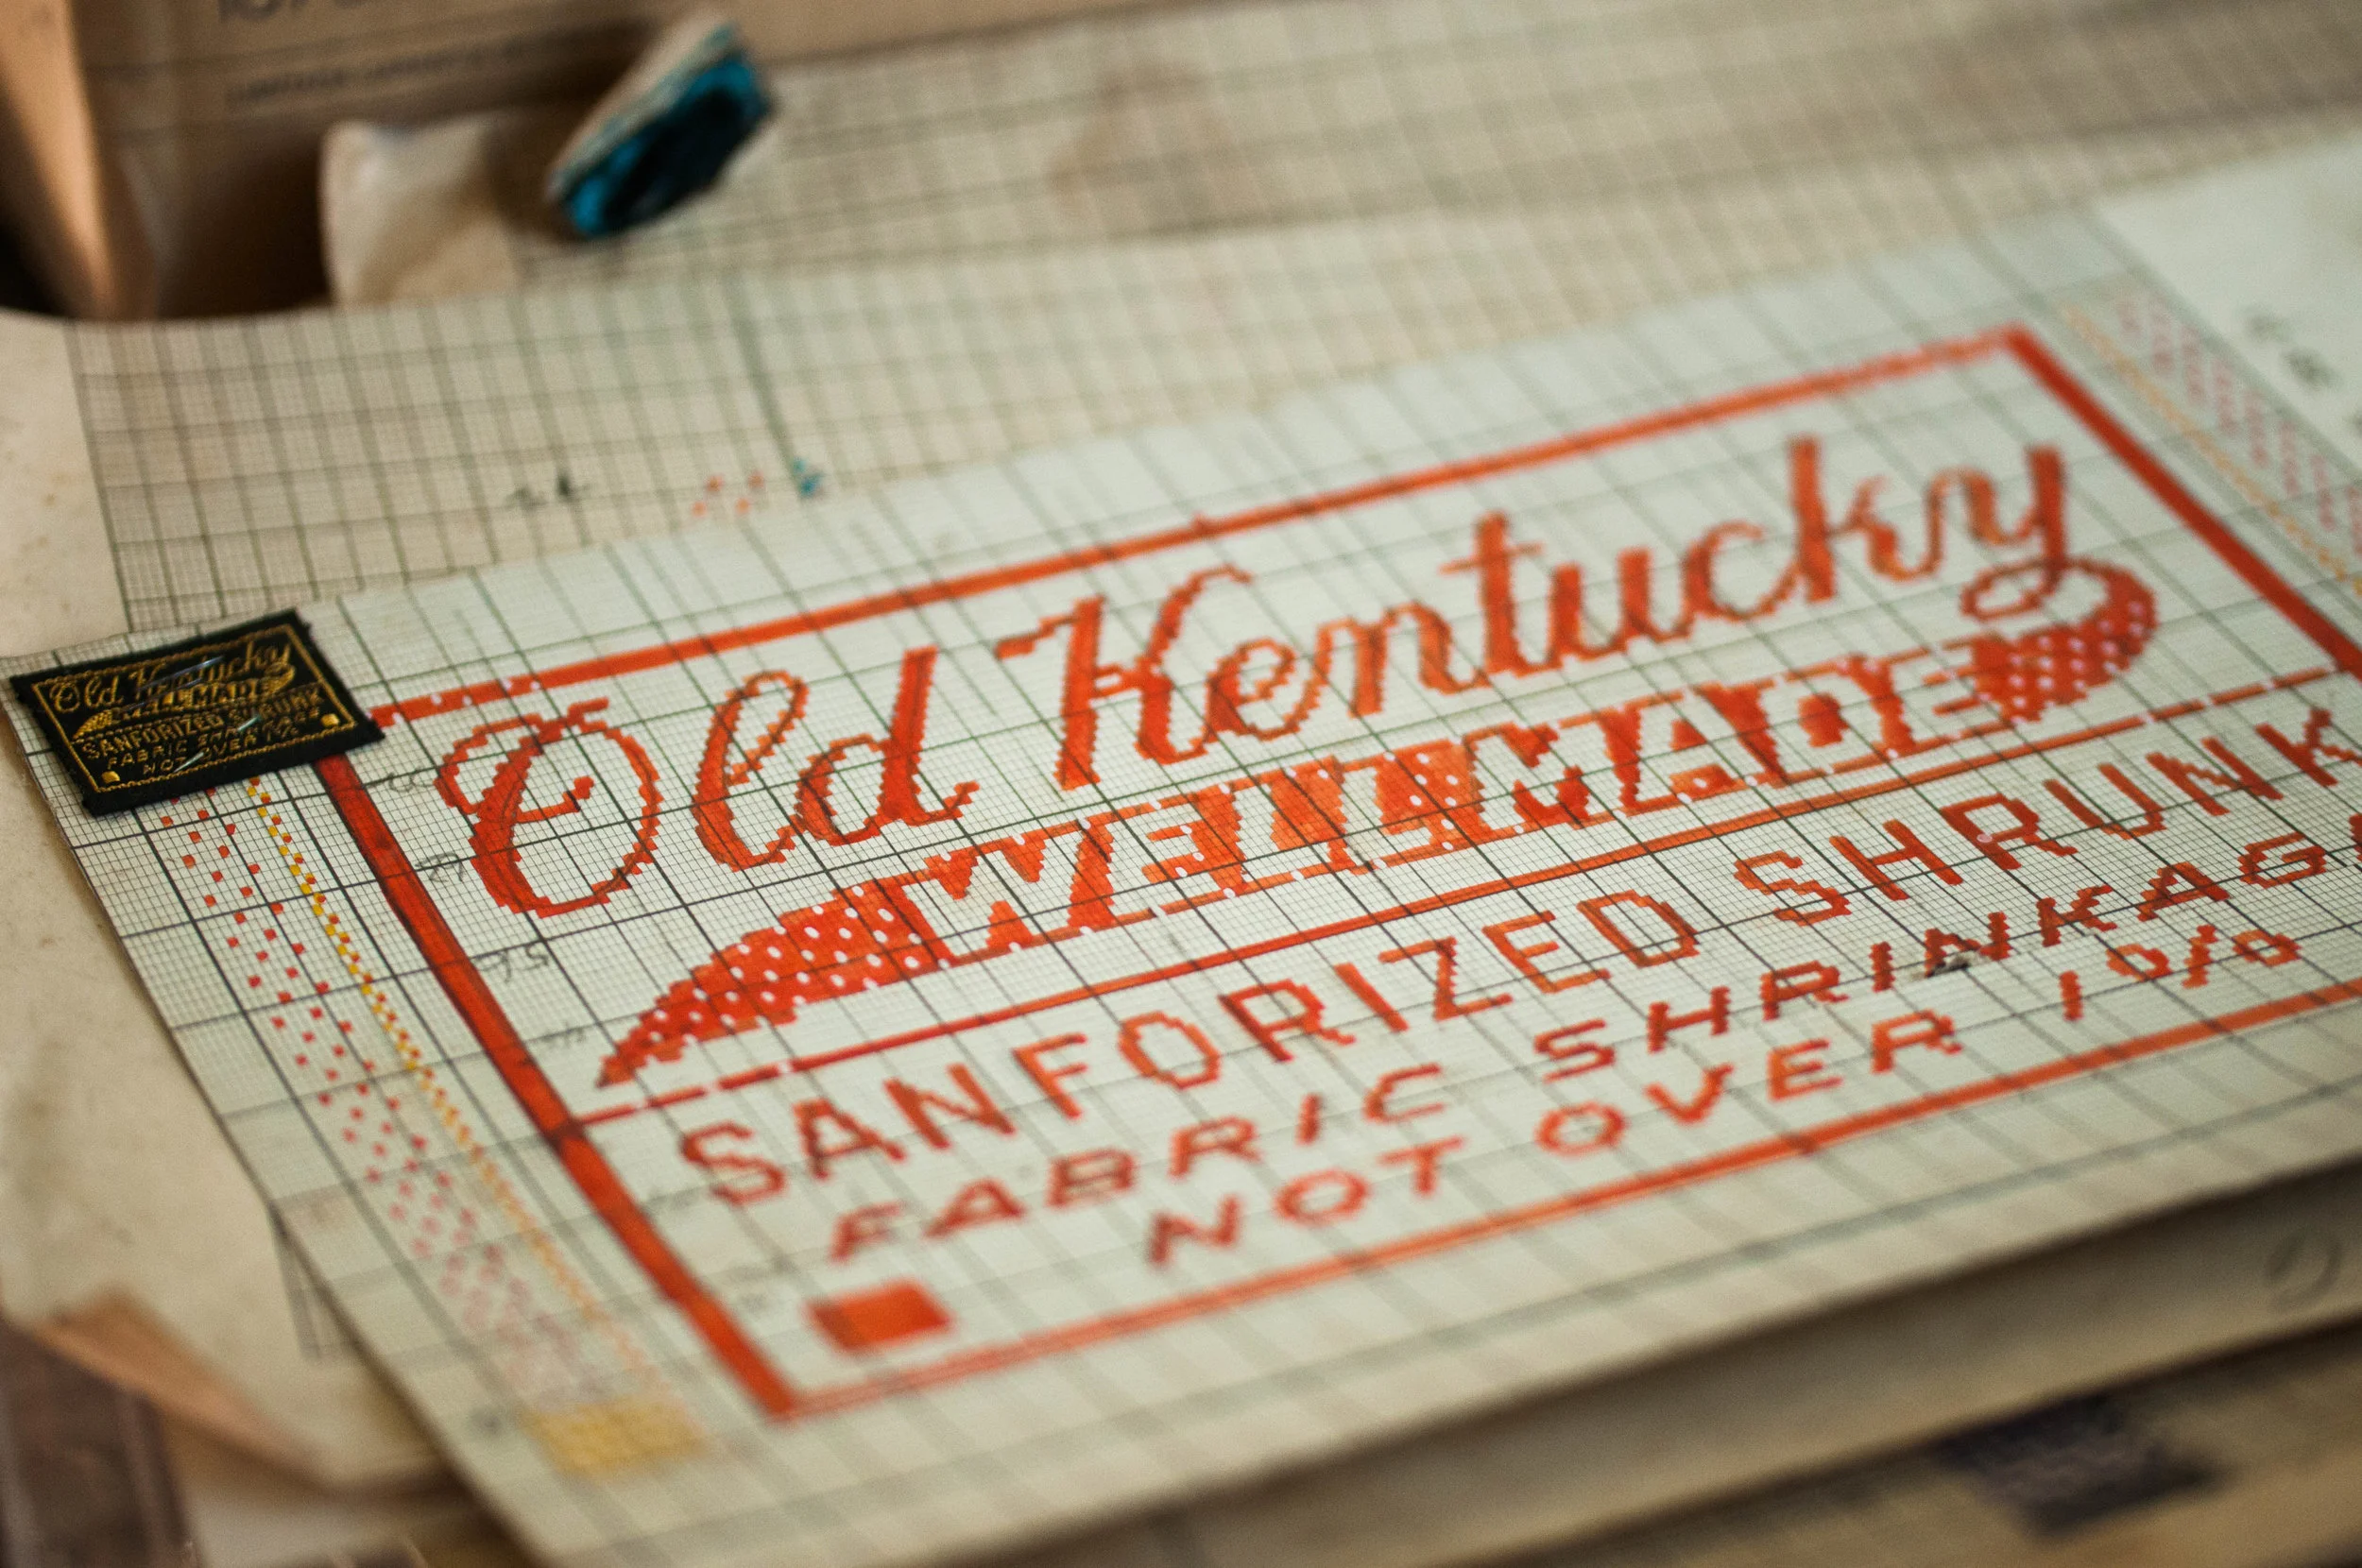 Old Kentucky
WELL MADE
SANFORIZED SHRUNK
FABRIC SHRINKAG
NOT OVER 1%
Old Kentucky
WELL MADE
SANFORIZED SHRUNK
FABRIC SHRINKAGE
NOT OVER 1%